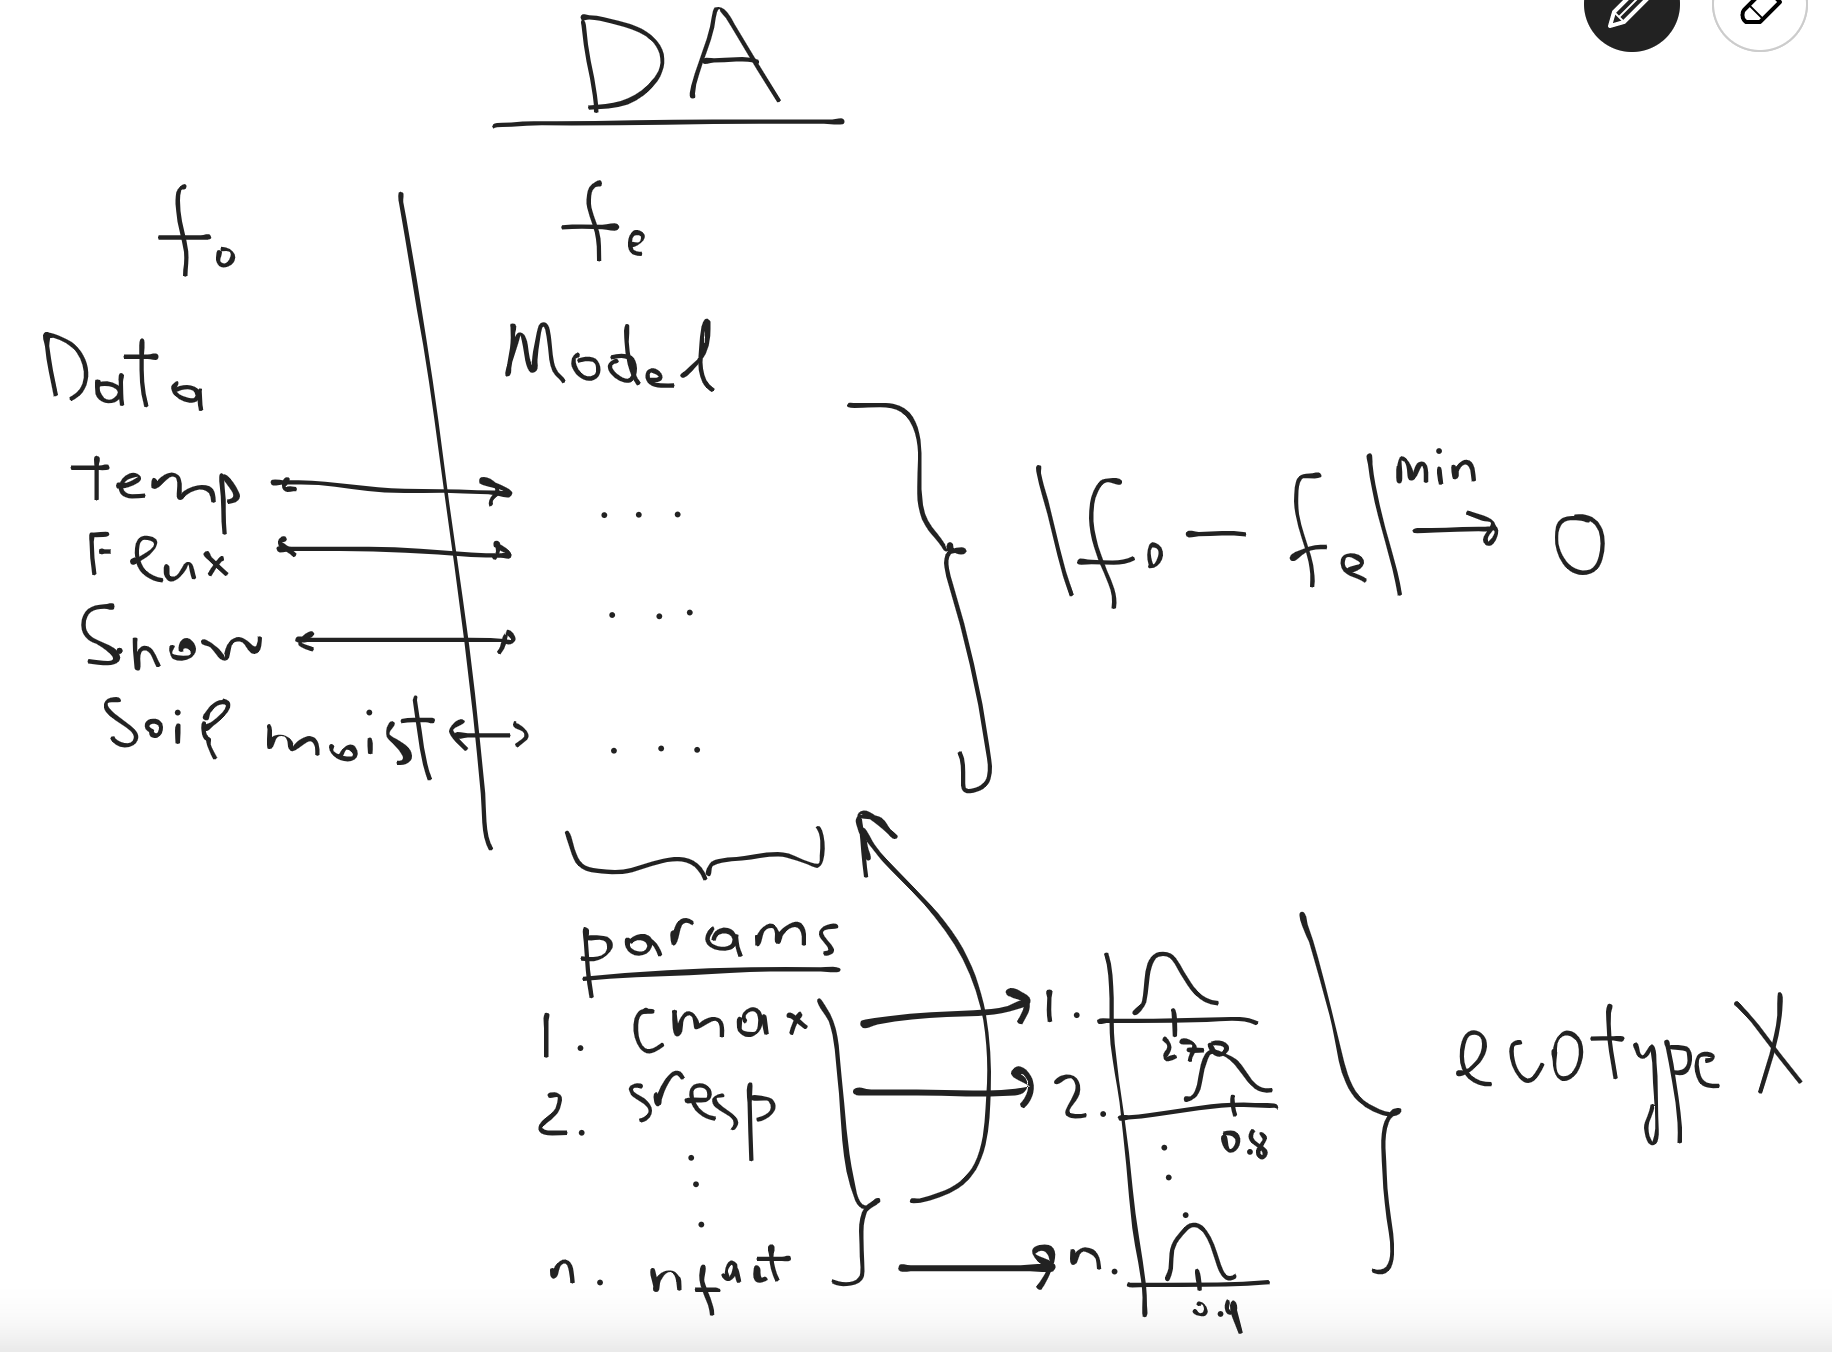 DA
fo
fe
Data
Model
temp
. . .
Flux
. . .
Snow
Soil moist
. . .
|fo - fe| min → 0
params
1. cmax → 1.
270
2. sresp → 2.
0.8
n. nfact → n.
0.4
ecotype X